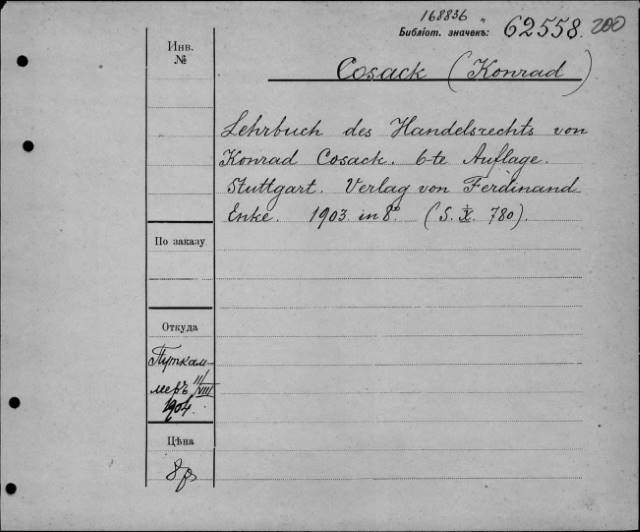 168836
Библіот. значекъ: 62558. 200
Инв.
№
Cosack (Konrad)
Lehrbuch des Handelsrechts von
Konrad Cosack. 6-te Auflage.
Stuttgart. Verlag von Ferdinand
Enke. 1903 in 8º (S. X. 780).
По заказу
Откуда
Путкам-
меръ 11/VIII
1904.
Цѣна
8р